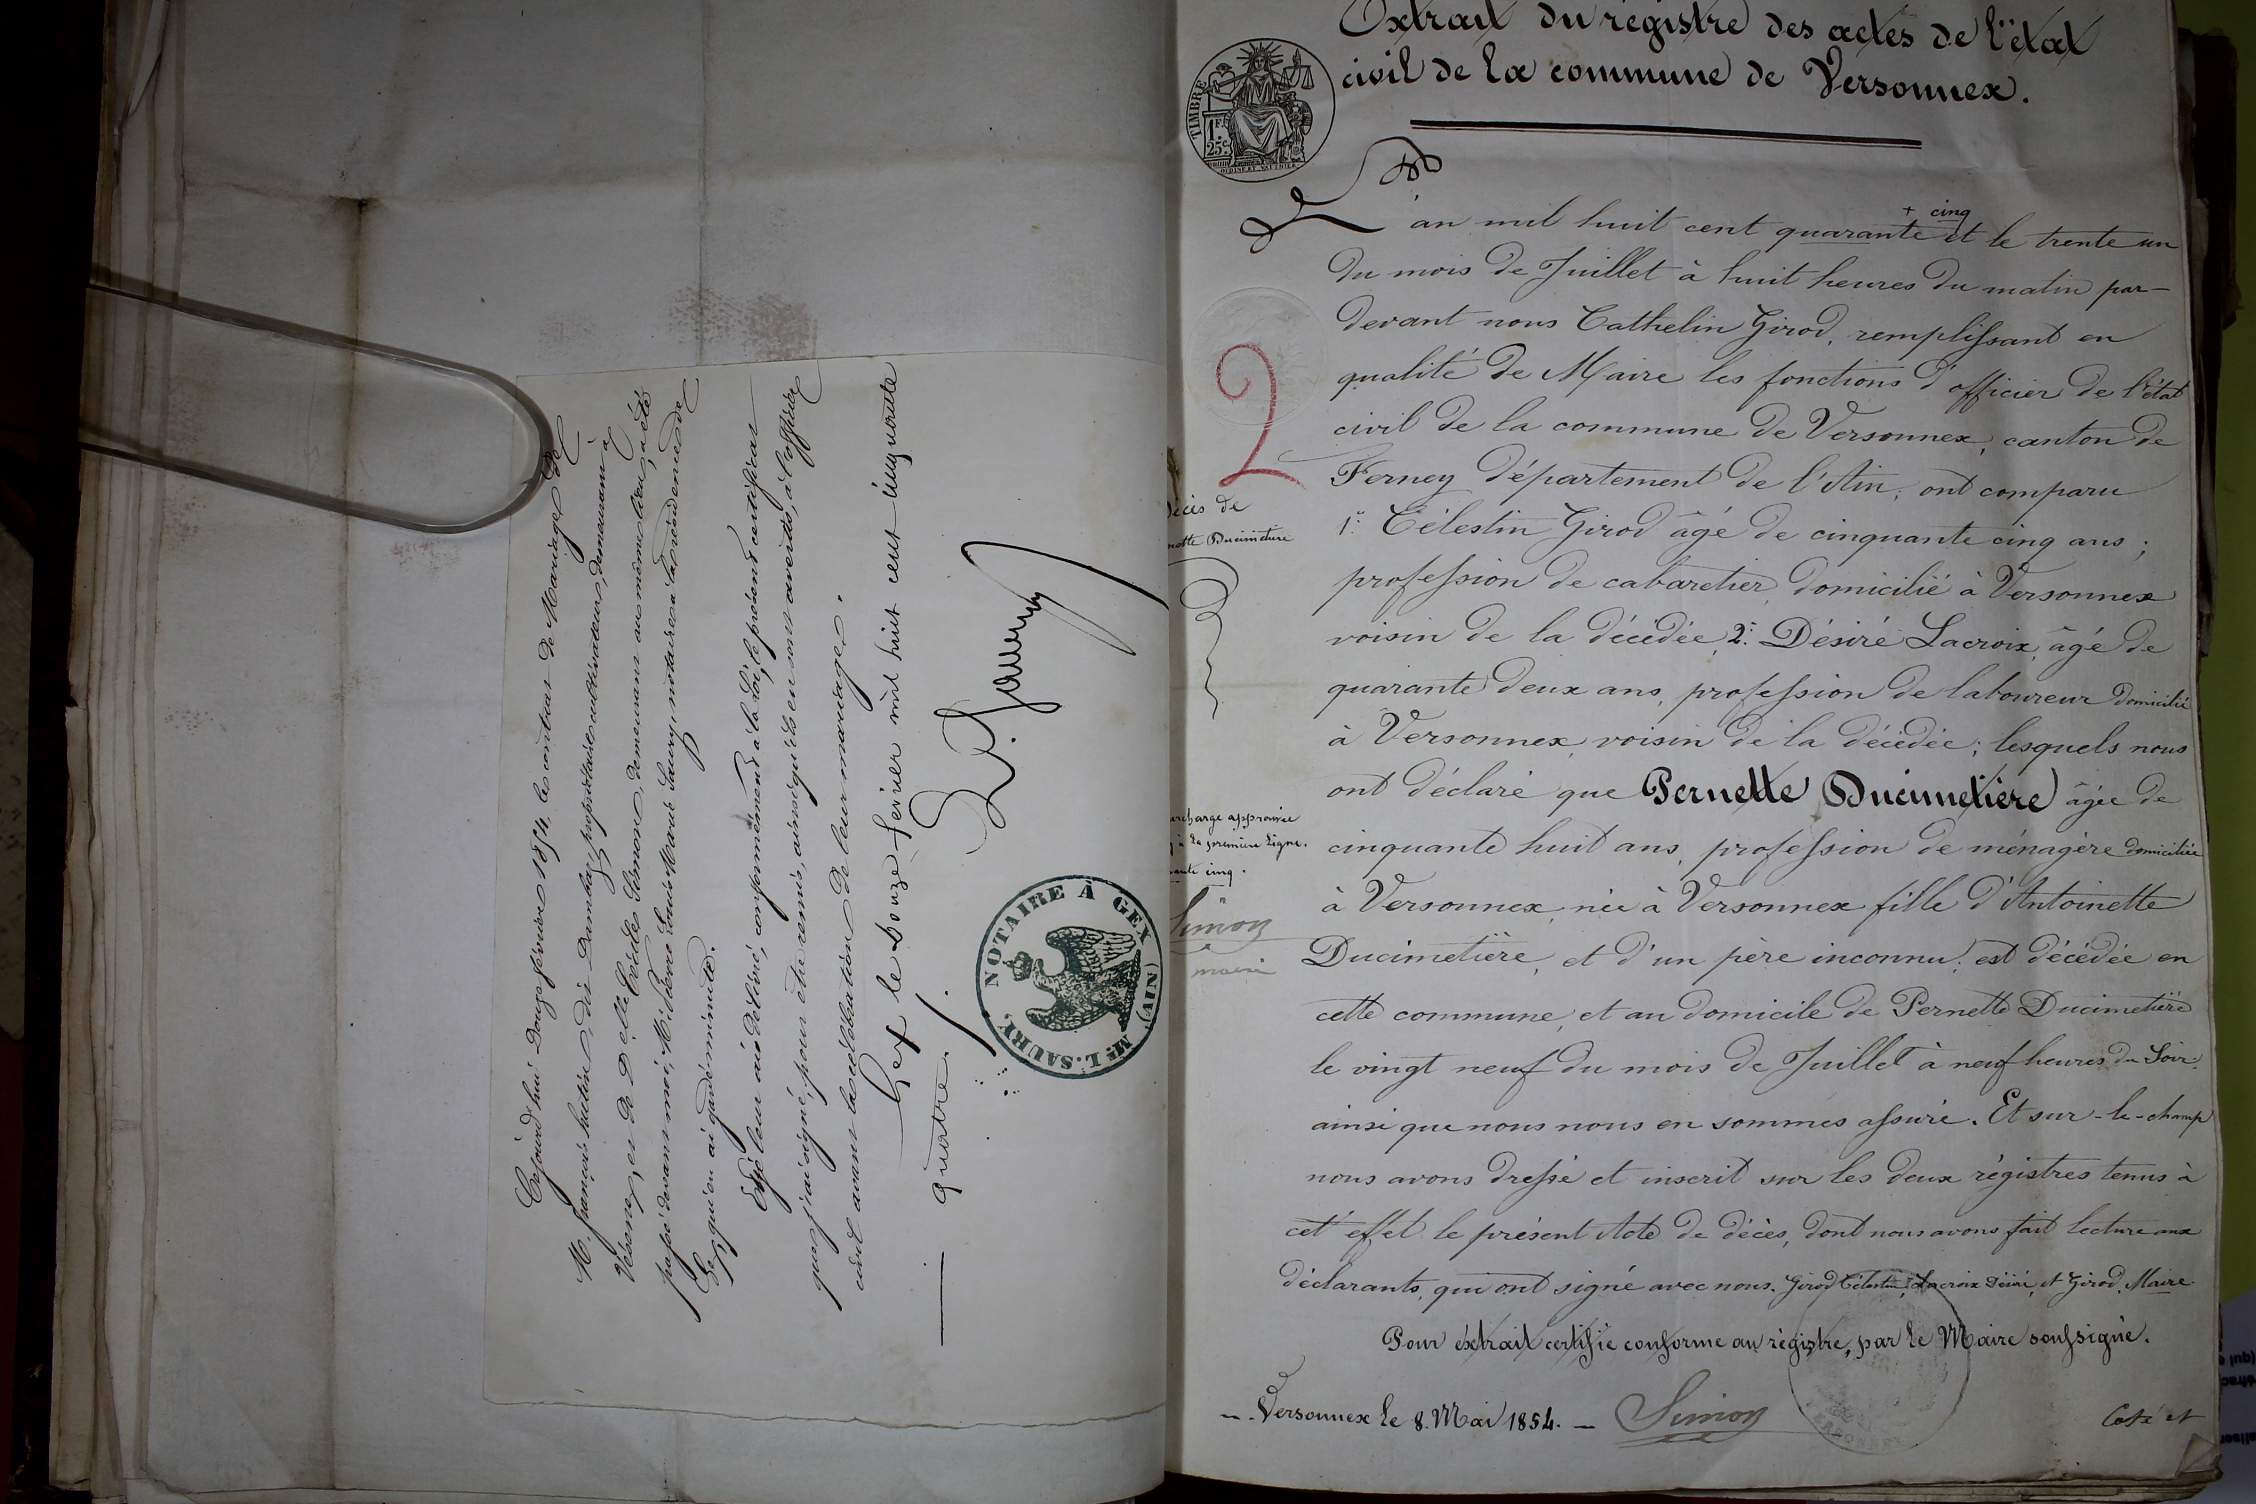 Cejourd'hui Douze février 1854, le contrat de Mariage de
M. françois hutin, dit Dumbar, propriétaire cultivateur, demeurant à
et de Delle Simon, demeurant au même lieu, a été
passé devant moi, Me Pierre Louis Marie Saury, notaire à la résidence de
Gex, qui en ai gardé minute.
Et je leur ai délivré, conformément à la loi, le présent certificat
que j'ai signé, pour être remis, ainsi qu'ils en sont avertis, à l'officier
civil avant la célébration de leur mariage.
Gex le douze février mil huit cent cinquante
quatre ./.
L. Saury
NOTAIRE À GEX (AIN)
Me L. SAURY
Extrait du régistre des actes de l'état
civil de la commune de Versonnex.
TIMBRE
1F.
25c.
L'an mil huit cent quarante + cinq et le trente un
du mois de Juillet à huit heures du matin par-
devant nous Cathelin Girod, remplissant en
qualité de Maire les fonctions d'officier de l'état
civil de la commune de Versonnex, canton de
Ferney département de l'Ain, ont comparu
1º. Célestin Girod âgé de cinquante cinq ans ;
profession de cabaretier, domicilié à Versonnex
voisin de la décédée, 2º. Désiré Lacroix, âgé de
quarante deux ans, profession de laboureur domicilié
à Versonnex, voisin de la décédée ; lesquels nous
ont déclaré que Pernette Ducimetière âgée de
cinquante huit ans, profession de ménagère domiciliée
à Versonnex, née à Versonnex fille d'Antoinette
Ducimetière, et d'un père inconnu, est décédée en
cette commune, et au domicile de Pernette Ducimetière
le vingt neuf du mois de Juillet à neuf heures du Soir
ainsi que nous nous en sommes assuré. Et sur-le-champ
nous avons dressé et inscrit sur les deux régistres tenus à
cet effet le présent Acte de décès, dont nous avons fait lecture aux
déclarants, qui ont signé avec nous. Girod Célestin, Lacroix Désiré, et Girod, Maire
Pour extrait certifié conforme au régistre, par le Maire soussigné.
Versonnex le 8. Mai 1854. Simon
Coté et
2
écès de
nette Ducimetière
urcharge approuvée
à la première ligne.
rante cinq.
Simon
maire